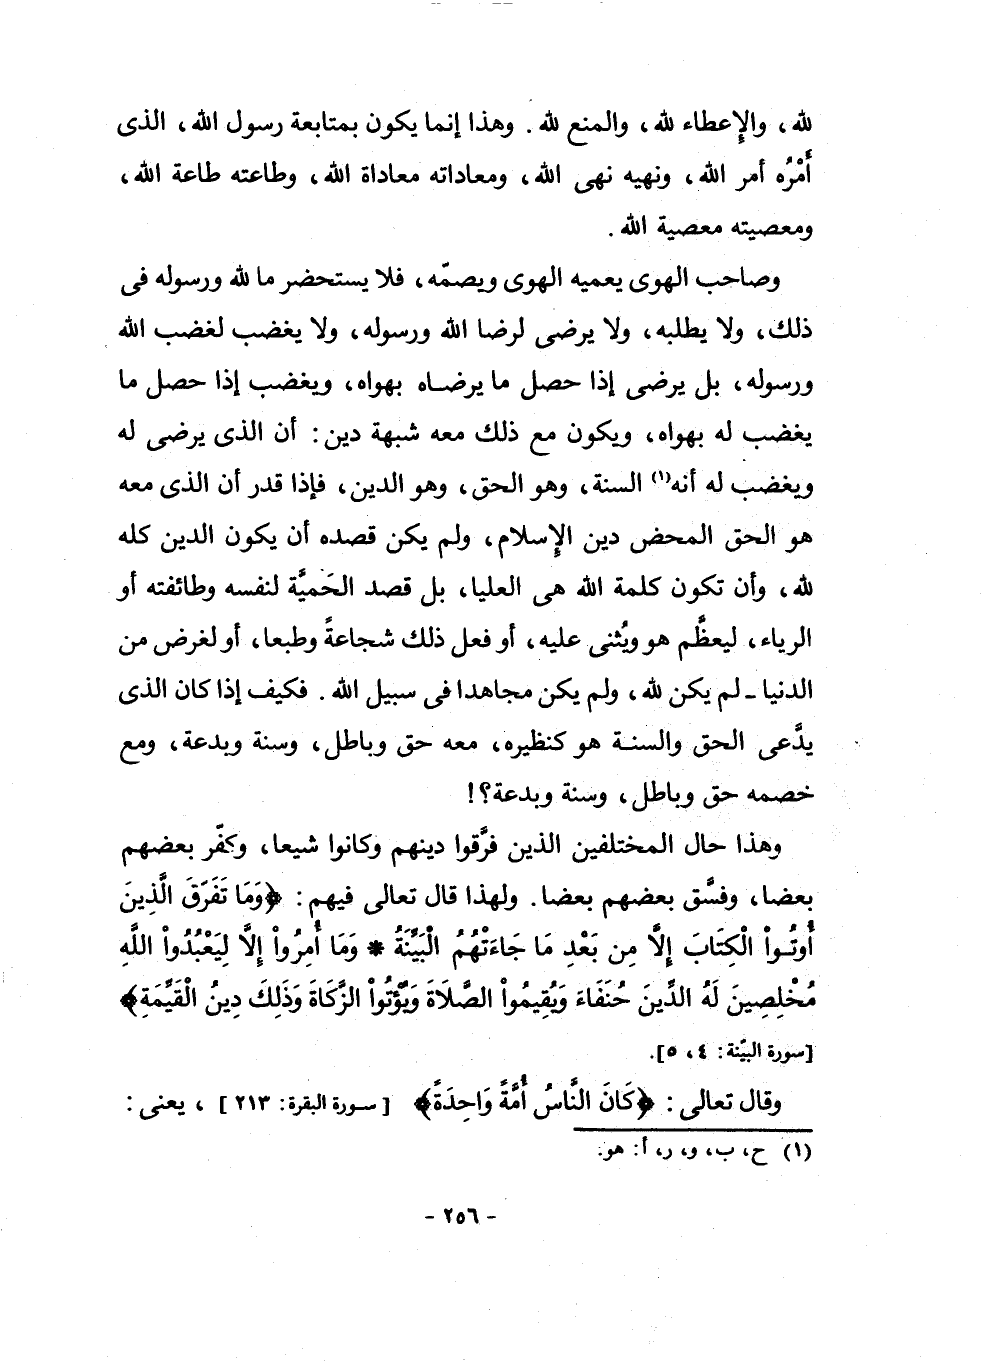 لله، والإعطاء لله، والمنع لله. وهذا إنما يكون بمتابعة رسول الله، الذى
أَمْرُه أمر الله، ونهيه نهى الله، ومعاداته معاداة الله، وطاعته طاعة الله،
ومعصيته معصية الله.
وصاحب الهوى يعميه الهوى ويصمّه، فلا يستحضر ما لله ورسوله فى
ذلك، ولا يطلبه، ولا يرضى لرضا الله ورسوله، ولا يغضب لغضب الله
ورسوله، بل يرضى إذا حصل ما يرضاه بهواه، ويغضب إذا حصل ما
يغضب له بهواه، ويكون مع ذلك معه شبهة دين: أن الذى يرضى له
ويغضب له أنه(١) السنة، وهو الحق، وهو الدين، فإذا قدر أن الذى معه
هو الحق المحض دين الإسلام، ولم يكن قصده أن يكون الدين كله
لله، وأن تكون كلمة الله هى العليا، بل قصد الحَميَّة لنفسه وطائفته أو
الرياء، ليعظَّم هو ويُثنى عليه، أو فعل ذلك شجاعةً وطبعا، أو لغرض من
الدنيا ـ لم يكن لله، ولم يكن مجاهدا فى سبيل الله. فكيف إذا كان الذى
يدَّعى الحق والسنة هو كنظيره، معه حق وباطل، وسنة وبدعة، ومع
خصمه حق وباطل، وسنة وبدعة؟!
وهذا حال المختلفين الذين فرَّقوا دينهم وكانوا شيعا، وكفّر بعضهم
بعضا، وفسَّق بعضهم بعضا. ولهذا قال تعالى فيهم: ﴿وَمَا تَفَرَّقَ الَّذِينَ
أُوتُواْ الْكِتَابَ إِلَّا مِن بَعْدِ مَا جَاءَتْهُمُ الْبَيِّنَةُ * وَمَا أُمِرُواْ إِلَّا لِيَعْبُدُواْ اللَّهِ
مُخْلِصِينَ لَهُ الدِّينَ حُنَفَاءَ وَيُقِيمُواْ الصَّلَاةَ وَيُؤْتُواْ الزَّكَاةَ وَذَلِكَ دِينُ الْقَيِّمَةِ﴾
[سورة البيّنة: ٤، ٥].
وقال تعالى: ﴿كَانَ النَّاسُ أُمَّةً وَاحِدَةً﴾ [سورة البقرة: ٢١٣]، يعنى:
(١) ح، ب، و، ر، أ: هو.
- ٢٥٦ -